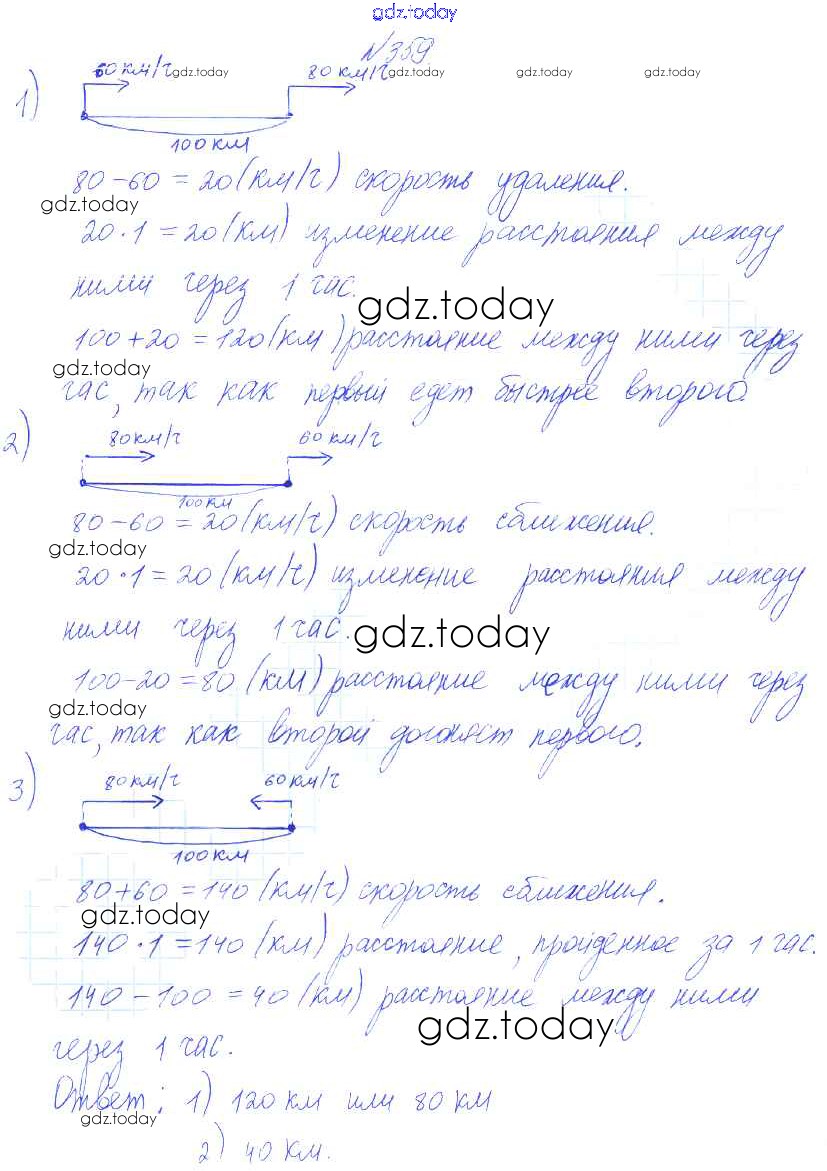 gdz.today
№359
1) 60 км/ч gdz.today 80 км/ч gdz.today gdz.today gdz.today
100 км
80-60=20(км/ч) скорость удаления.
gdz.today
20·1=20(км) изменение расстояния между
ними через 1 час.
gdz.today
100+20=120(км) расстояние между ними через
gdz.today
час, так как первый едет быстрее второго.
2) 80км/ч 60 км/ч
100км
80-60=20(км/ч) скорость сближения.
gdz.today
20·1=20(км/ч) изменение расстояния между
ними через 1 час.
gdz.today
100-20=80 (км) расстояние между ними через
gdz.today
час, так как второй догоняет первого.
3) 80км/ч 60км/ч
100 км
80+60=140 (км/ч) скорость сближения.
gdz.today
140·1=140 (км) расстояние, пройденное за 1 час.
140-100=40 (км) расстояние между ними
gdz.today
через 1 час.
Ответ: 1) 120 км или 80 км
gdz.today
2) 40 км.